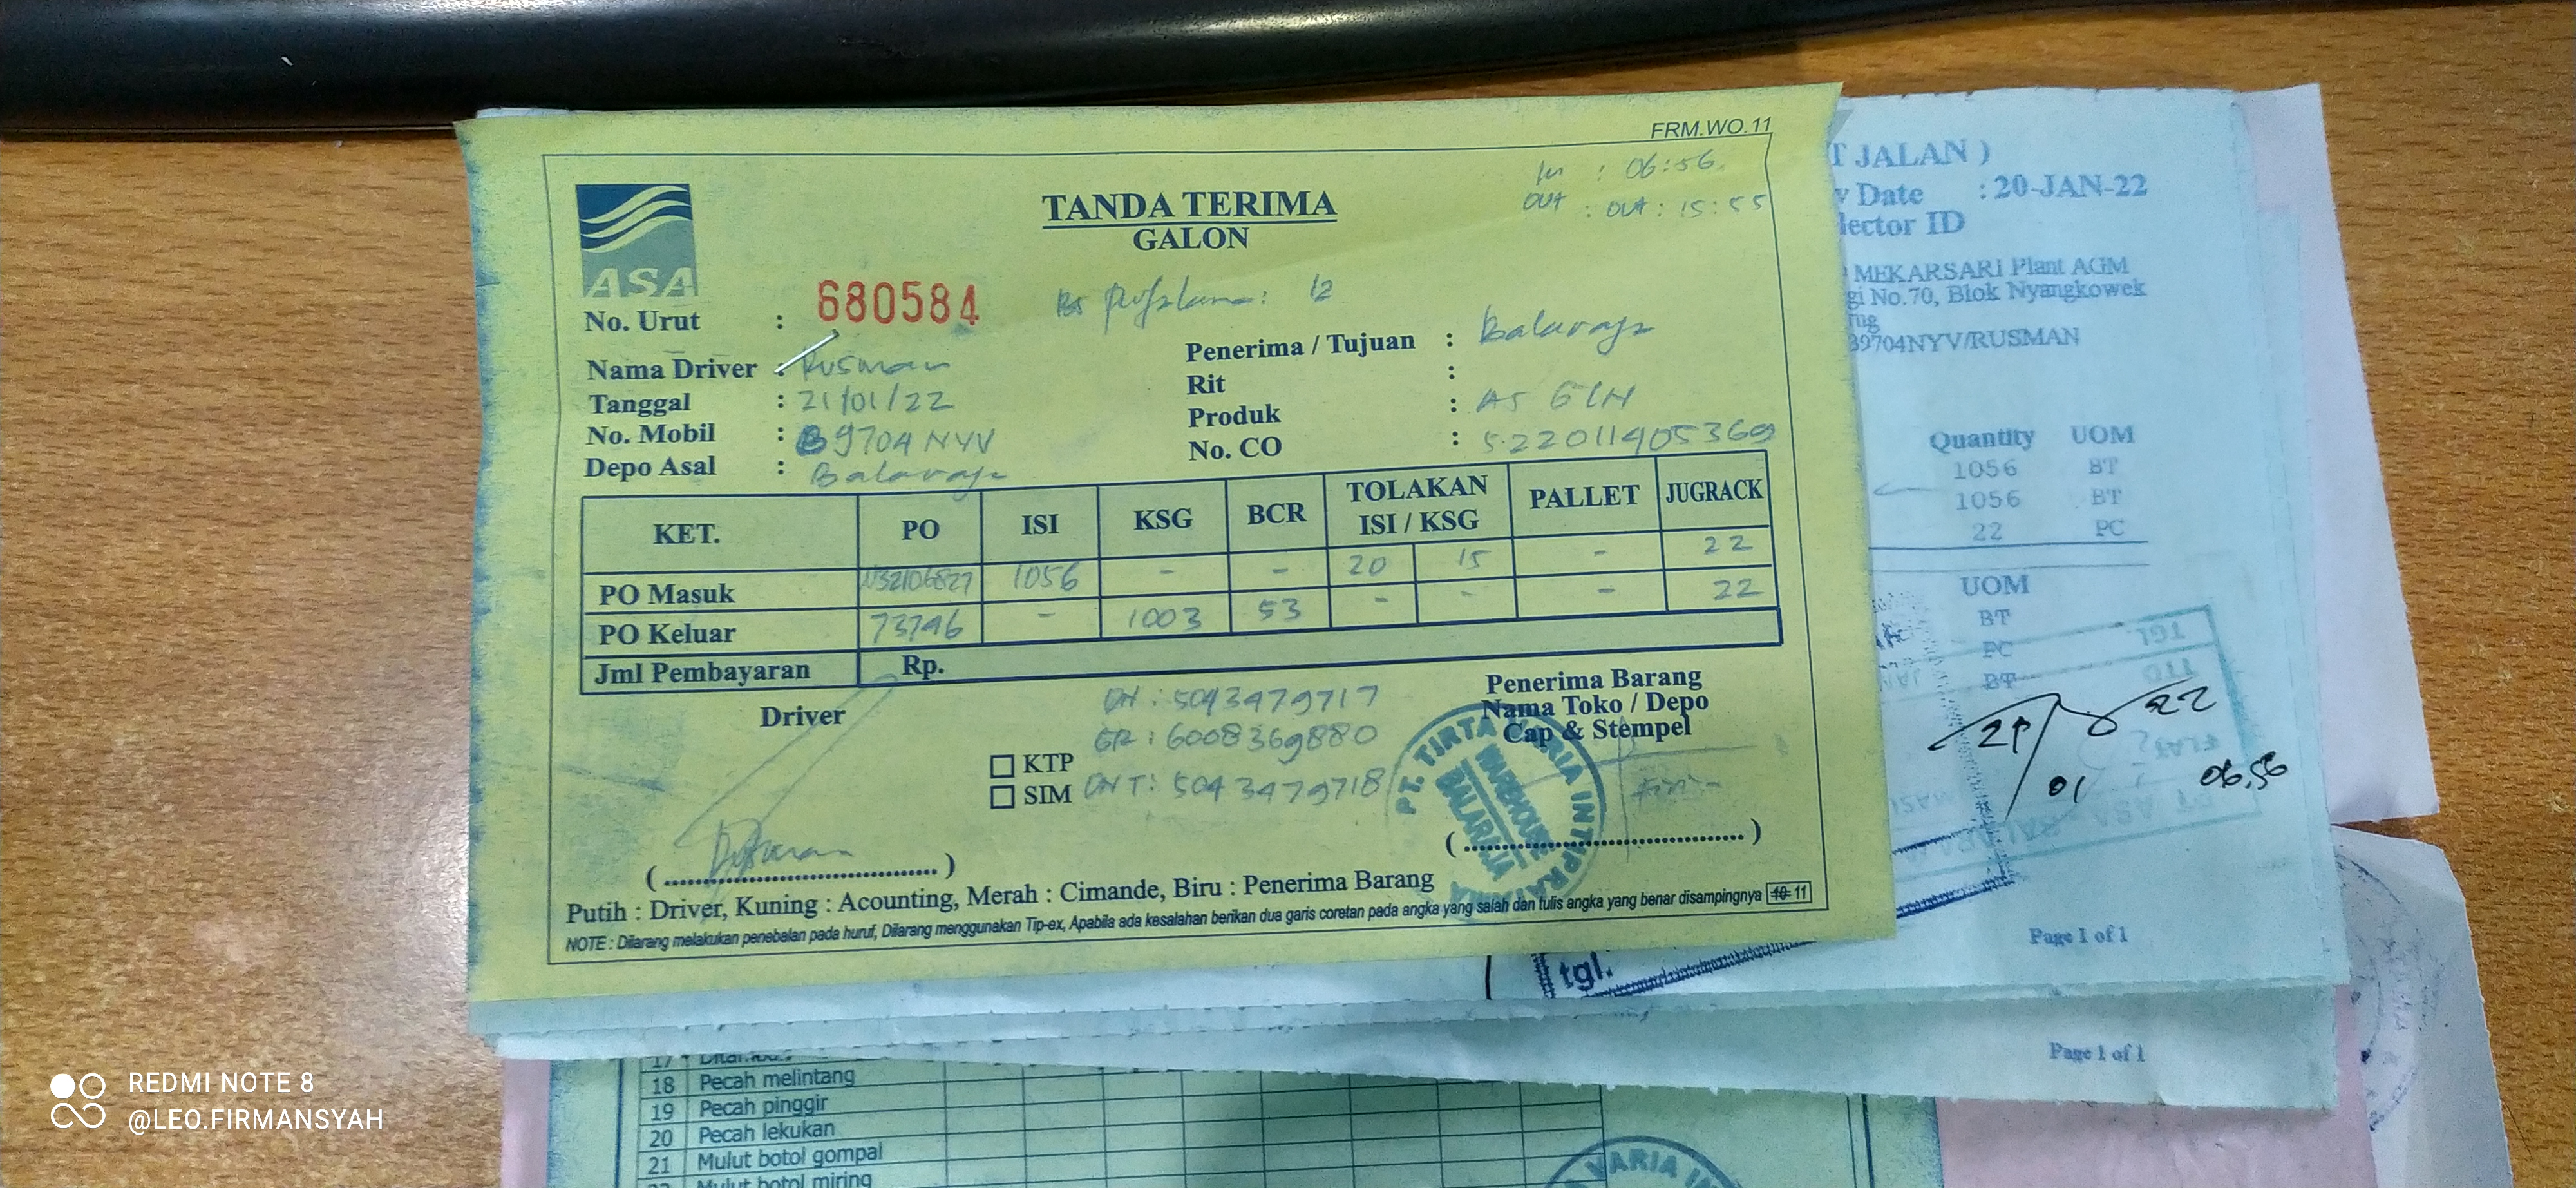 FRM.WO.11
In : 06:56
OUT : OUT : 15:55
TANDA TERIMA
GALON
ASA
No. Urut : 680584
12
Nama Driver : Rusman
Penerima / Tujuan : Balaraja
Tanggal : 21/01/22
Rit :
No. Mobil : B 9704 NYV
Produk : A5 GLN
Depo Asal : Balaraja
No. CO : 5.22011405369
KET. PO ISI KSG BCR TOLAKAN ISI / KSG PALLET JUGRACK
PO Masuk 1056 - - 20 15 - 22
PO Keluar 73746 - 1003 53 - - - 22
Jml Pembayaran Rp.
Driver
DN : 5043479717
GR : 6008369880
DN T : 5043479718
KTP
SIM
Penerima Barang
Nama Toko / Depo
Cap & Stempel
PT. TIRTA VARIA INTIPRATAMA
WAREHOUSE
BALARAJA
( Rusman )
(..............................)
Putih : Driver, Kuning : Acounting, Merah : Cimande, Biru : Penerima Barang
NOTE : Dilarang melakukan penebalan pada huruf, Dilarang menggunakan Tip-ex, Apabila ada kesalahan berikan dua garis coretan pada angka yang salah dan tulis angka yang benar disampingnya 10 11
T JALAN )
y Date : 20-JAN-22
lector ID
MEKARSARI Plant AGM
gi No.70, Blok Nyangkowek
ng
B9704NYV/RUSMAN
Quantity UOM
1056 BT
1056 BT
22 PC
UOM
BT
PC
BT
TGL
TTD
21/01 22
06.56
tgl.
Page 1 of 1
Page 1 of 1
17
18 Pecah melintang
19 Pecah pinggir
20 Pecah lekukan
21 Mulut botol gompal
Mulut botol miring
VARIA IN
REDMI NOTE 8
@LEO.FIRMANSYAH